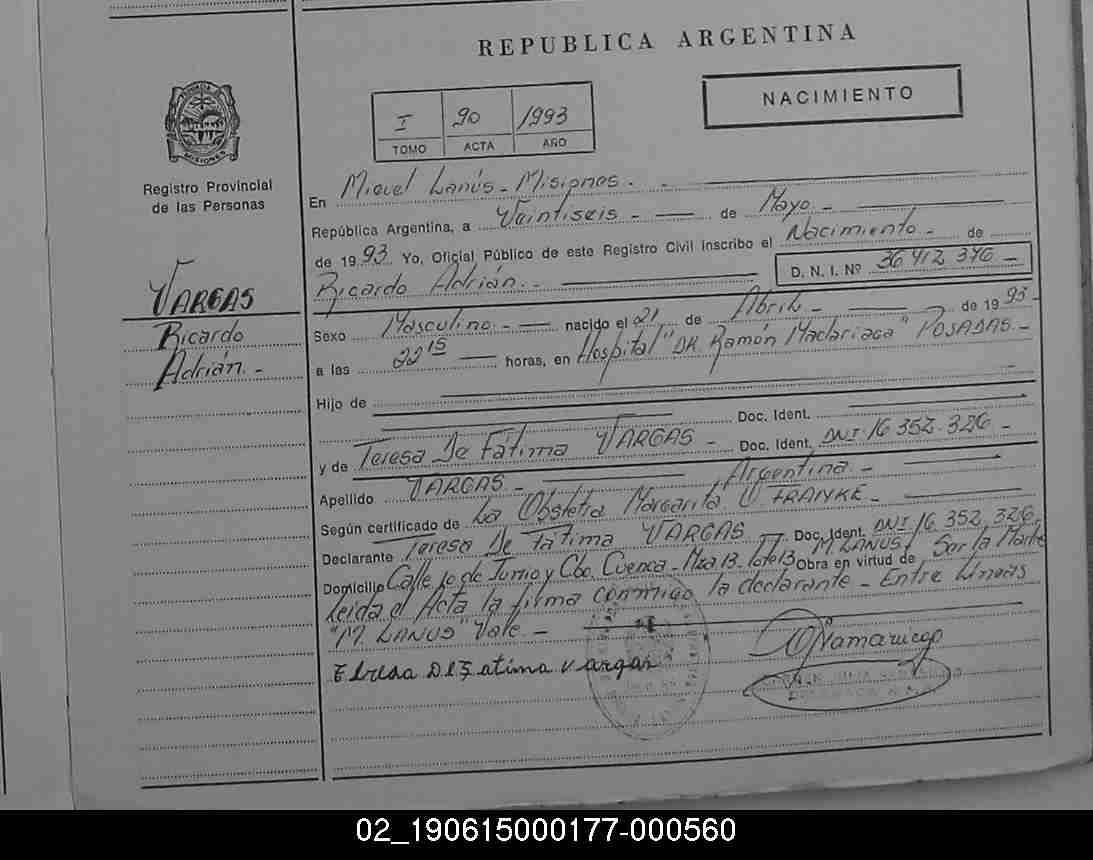 REPUBLICA ARGENTINA
NACIMIENTO
I 90 1993
TOMO ACTA AÑO
PROVINCIA DE
MISIONES
Registro Provincial
de las Personas
VARGAS
Ricardo
Adrián.-
En Miguel Lanús - Misiones.-
República Argentina, a Veintiseis - de Mayo -
de 1993 Yo, Oficial Público de este Registro Civil inscribo el Nacimiento - de
Ricardo Adrián.- D. N. I. Nº 36 412 376 -
Sexo Masculino.- nacido el 21 de Abril - de 1993 -
a las 22 15 horas, en Hospital "DR. Ramón Madariaga" POSADAS.-
Hijo de
Doc. Ident.
y de Teresa De Fátima VARGAS - Doc. Ident. DNI 16 352 326 -
Apellido VARGAS - Argentina -
Según certificado de La Obstetra Margarita O. FRANKE -
Declarante Teresa De Fátima VARGAS Doc. Ident. DNI 16 352 326.
Domicilio Calle 10 de Junio y Cbo. Cuenca - Mza 13 - lote 13 M. LANUS/ Obra en virtud de Ser la Madre
Leida el Acta la firma conmigo la declarante - Entre Líneas
"M. LANUS" Vale.-
Teresa De Fatima Vargas
02_190615000177-000560